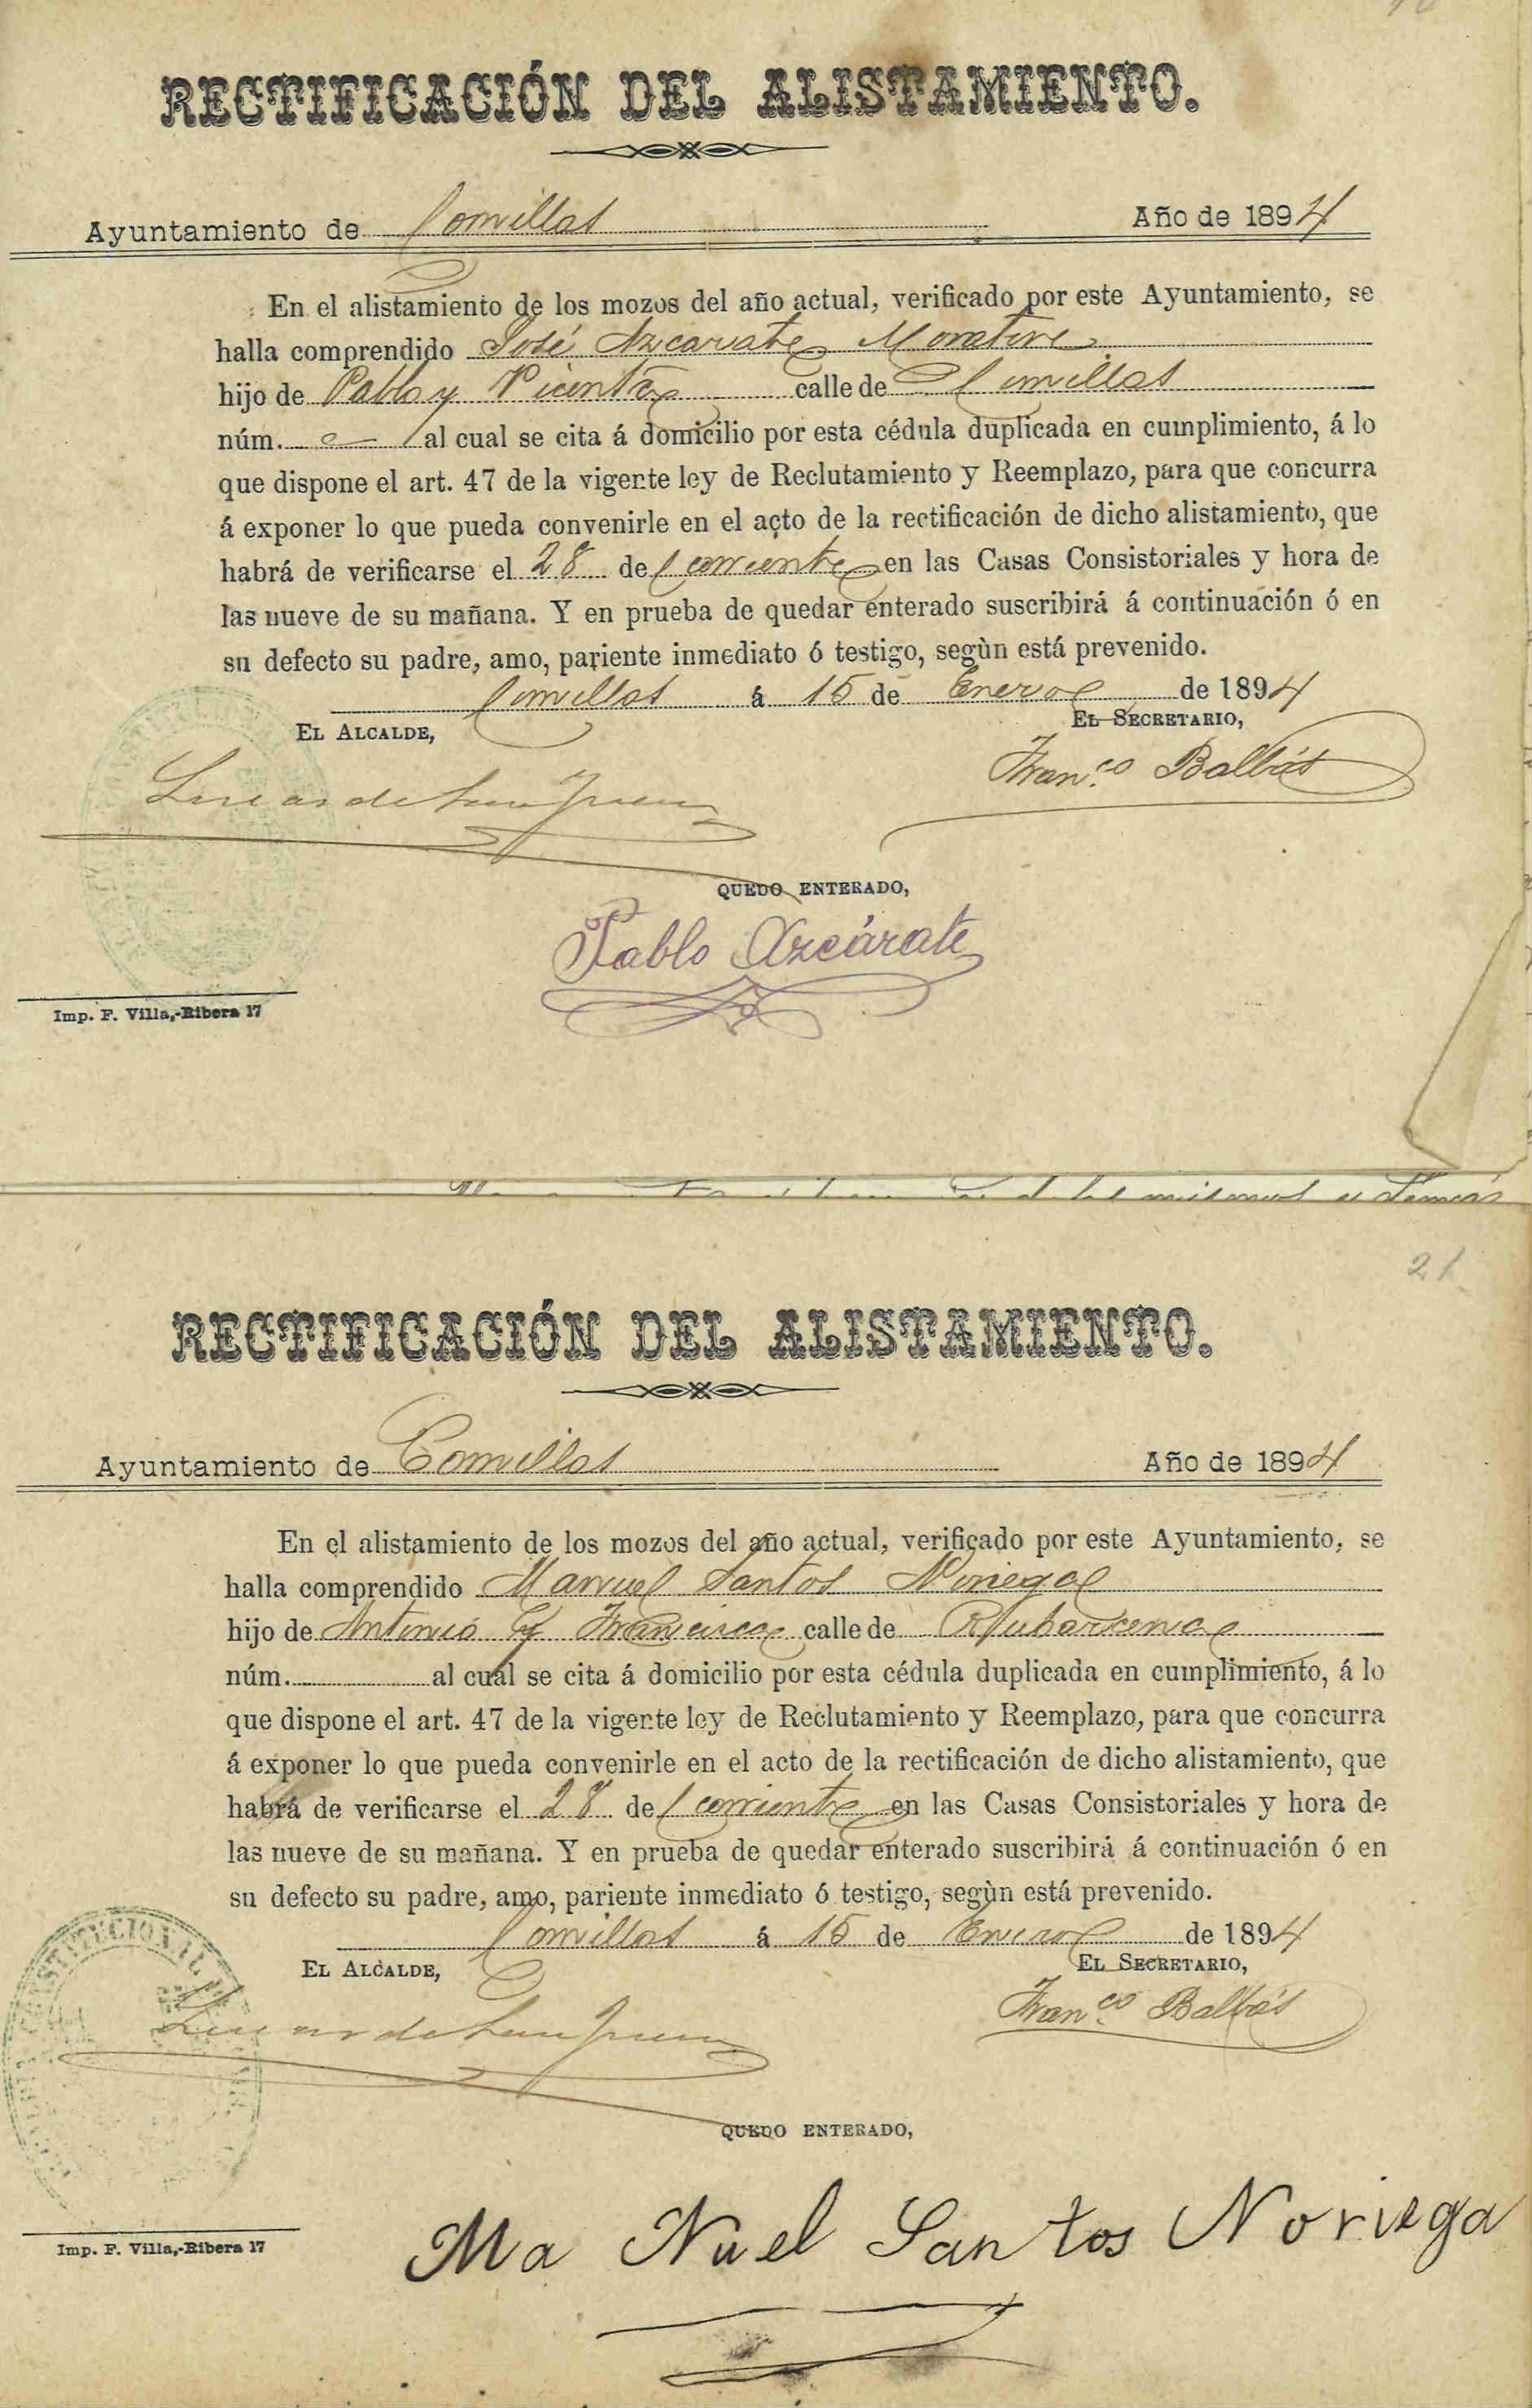 RECTIFICACIÓN DEL ALISTAMIENTO.
Ayuntamiento de Comillas Año de 1894
En el alistamiento de los mozos del año actual, verificado por este Ayuntamiento, se
halla comprendido José Azcarate
hijo de Pablo y Vicenta calle de Comillas
núm. al cual se cita á domicilio por esta cédula duplicada en cumplimiento, á lo
que dispone el art. 47 de la vigente ley de Reclutamiento y Reemplazo, para que concurra
á exponer lo que pueda convenirle en el acto de la rectificación de dicho alistamiento, que
habrá de verificarse el 28 del corriente en las Casas Consistoriales y hora de
las nueve de su mañana. Y en prueba de quedar enterado suscribirá á continuación ó en
su defecto su padre, amo, pariente inmediato ó testigo, segùn está prevenido.
Comillas á 15 de Enero de 1894
EL ALCALDE, EL SECRETARIO,
Franco. Balbás
QUEDO ENTERADO,
Pablo Azcárate
Imp. F. Villa,-Ribera 17
de los mismos y demás
21
RECTIFICACIÓN DEL ALISTAMIENTO.
Ayuntamiento de Comillas Año de 1894
En el alistamiento de los mozos del año actual, verificado por este Ayuntamiento, se
halla comprendido Manuel Santos Noriega
hijo de Antonio y Francisca calle de Rubarcena
núm. al cual se cita á domicilio por esta cédula duplicada en cumplimiento, á lo
que dispone el art. 47 de la vigente ley de Reclutamiento y Reemplazo, para que concurra
á exponer lo que pueda convenirle en el acto de la rectificación de dicho alistamiento, que
habrá de verificarse el 28 del corriente en las Casas Consistoriales y hora de
las nueve de su mañana. Y en prueba de quedar enterado suscribirá á continuación ó en
su defecto su padre, amo, pariente inmediato ó testigo, segùn está prevenido.
Comillas á 15 de Enero de 1894
EL ALCALDE, EL SECRETARIO,
Franco. Balbás
QUEDO ENTERADO,
Ma Nuel Santos Noriega
Imp. F. Villa,-Ribera 17